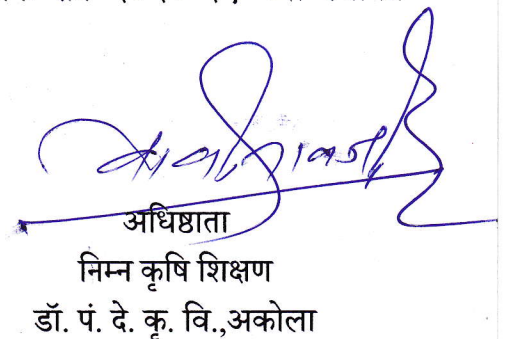 अधिष्ठाता
निम्न कृषि शिक्षण
डॉ. पं. दे. कृ. वि.,अकोला